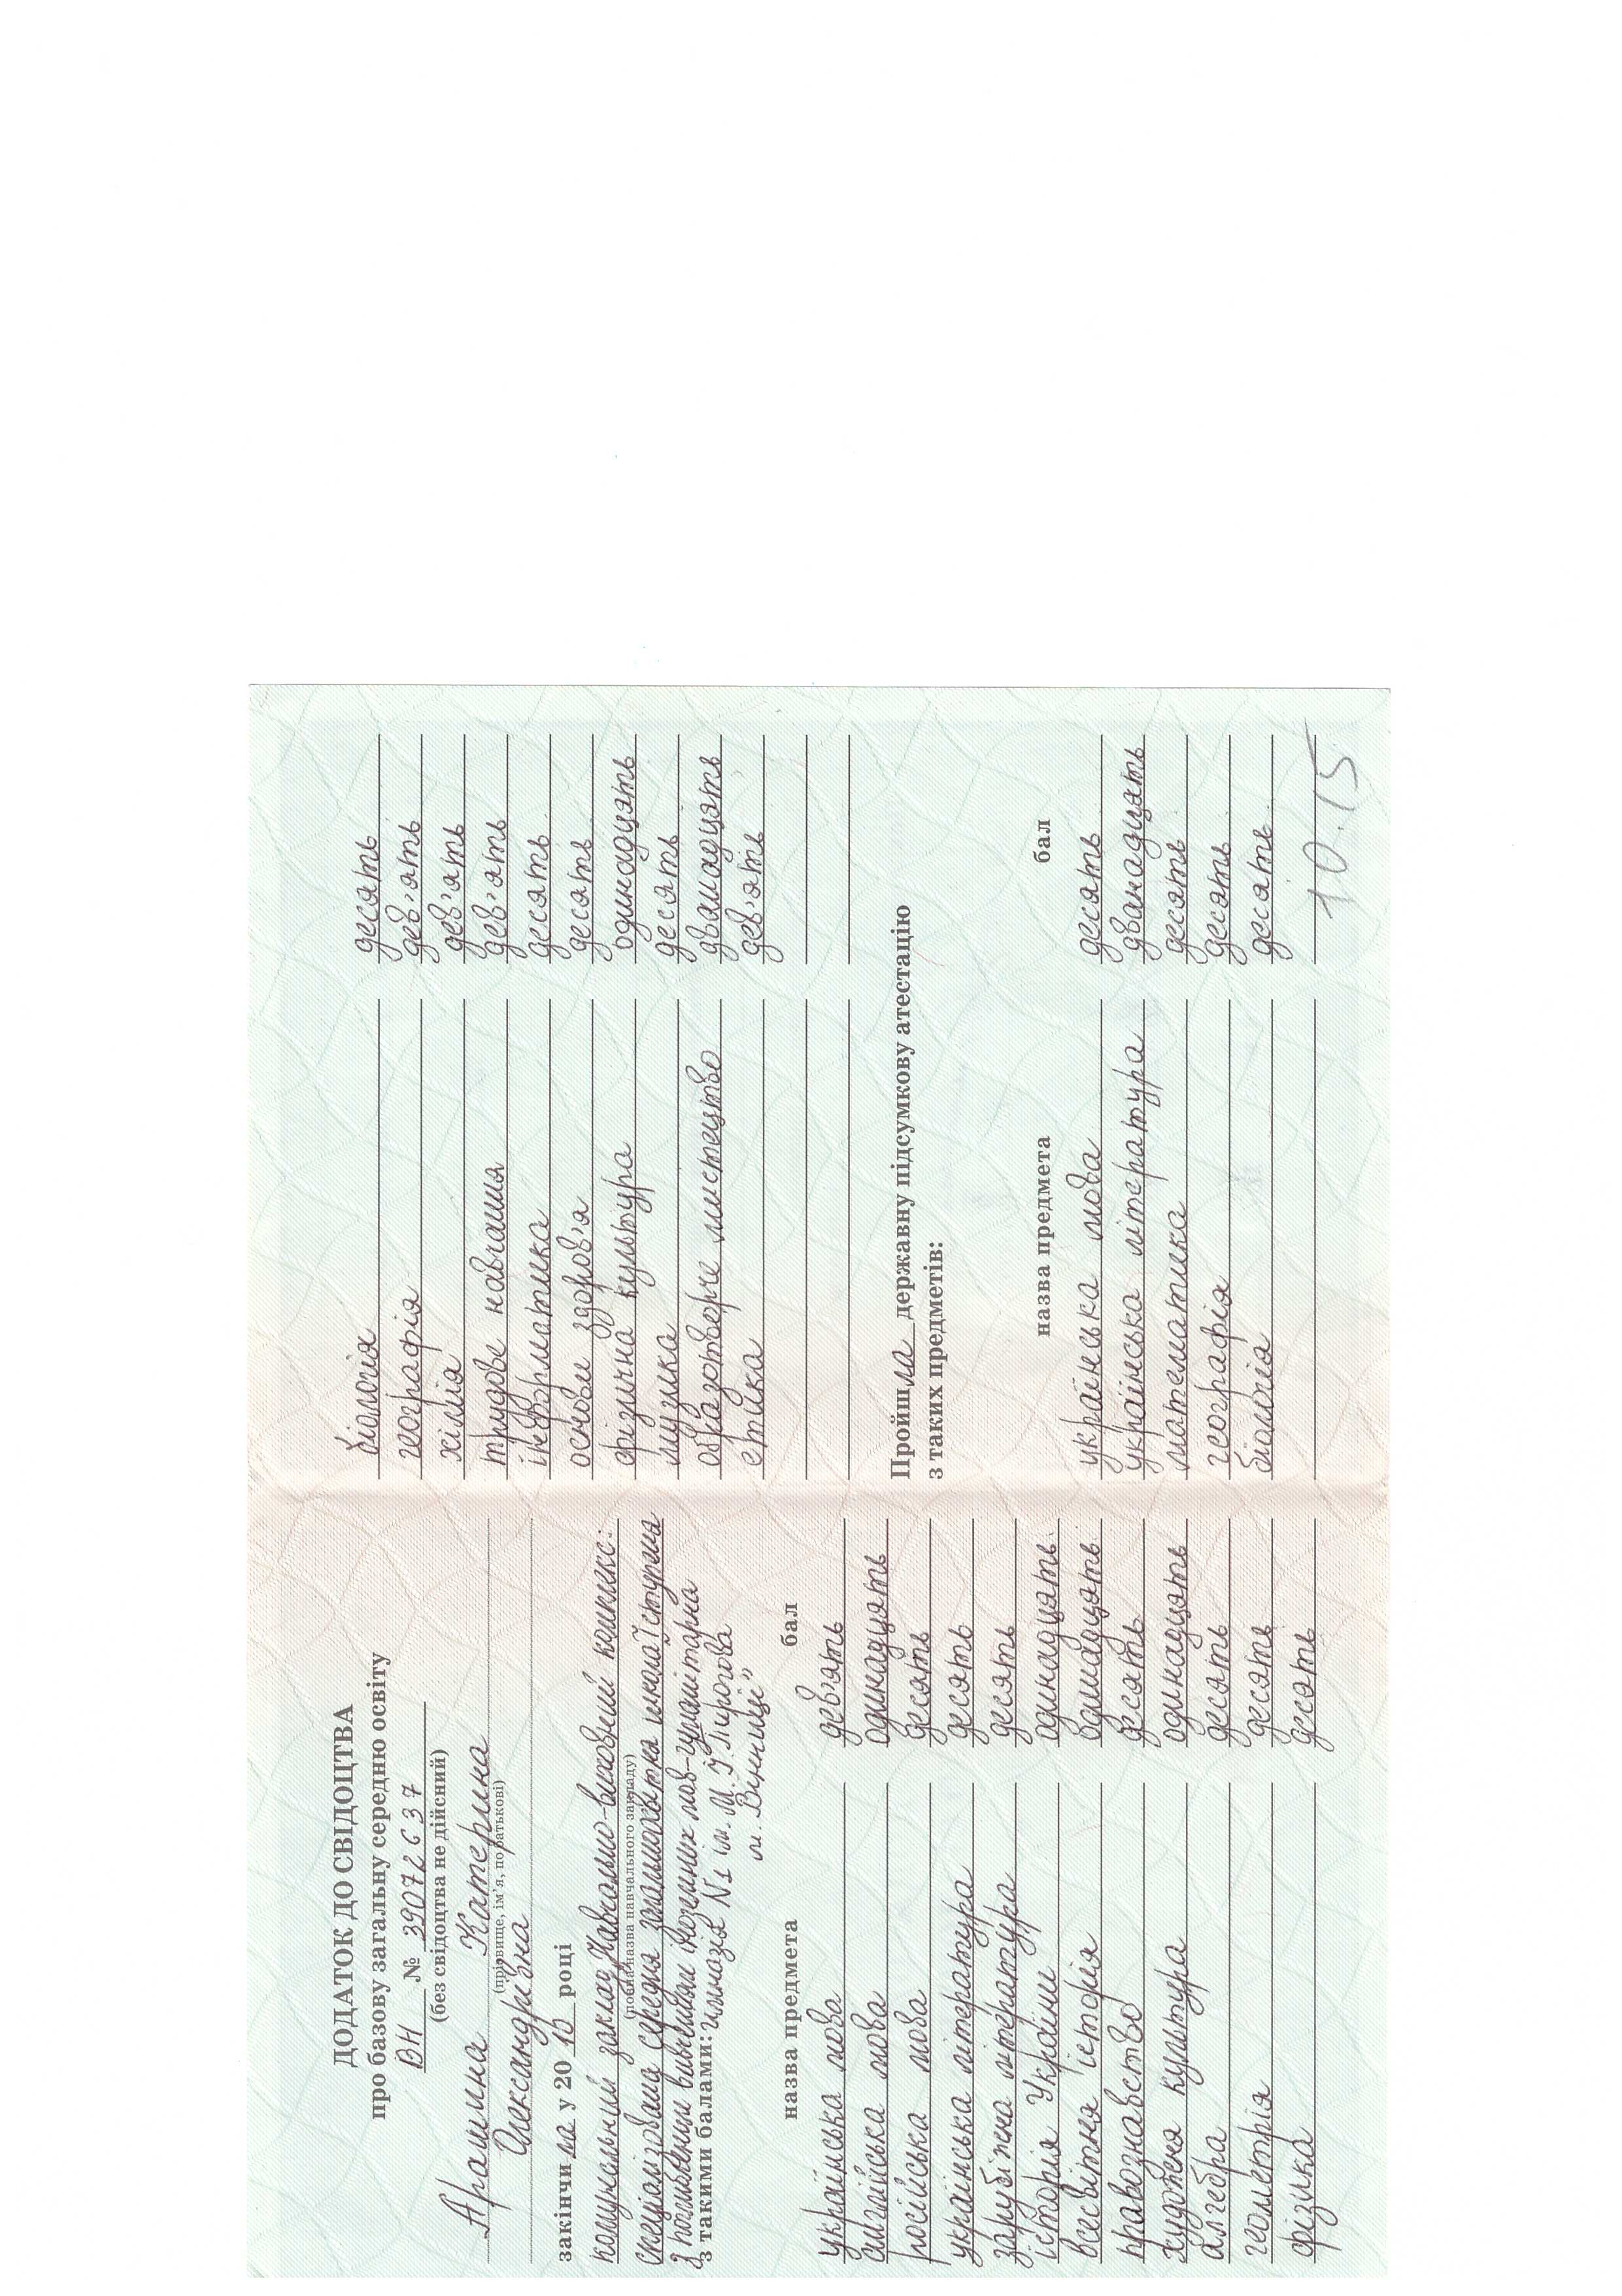 ДОДАТОК ДО СВІДОЦТВА
про базову загальну середню освіту
ВН № 39072637
(без свідоцтва не дійсний)
Арашина Катерина
(прізвище, ім'я, по батькові)
Олександрівна
закінчила у 2010 році
комунальний заклад „Навчально-виховний комплекс:
(повна назва навчального закладу)
спеціалізована середня загальноосвітня школа І ступеня
з поглибленим вивченням іноземних мов-гуманітарна
з такими балами: гімназія №1 ім. М. І. Пирогова
м. Вінниці"
назва предмета бал
українська мова дев'ять
англійська мова одинадцять
російська мова десять
українська література десять
зарубіжна література десять
історія України одинадцять
всесвітня історія одинадцять
правознавство десять
художня культура одинадцять
алгебра десять
геометрія десять
фізика десять
біологія десять
географія дев'ять
хімія дев'ять
трудове навчання дев'ять
інформатика десять
основи здоров'я десять
фізична культура одинадцять
музика десять
образотворче мистецтво дванадцять
етика дев'ять
Пройшла державну підсумкову атестацію
з таких предметів:
назва предмета бал
українська мова десять
українська література дванадцять
математика десять
географія десять
біологія десять
10.15